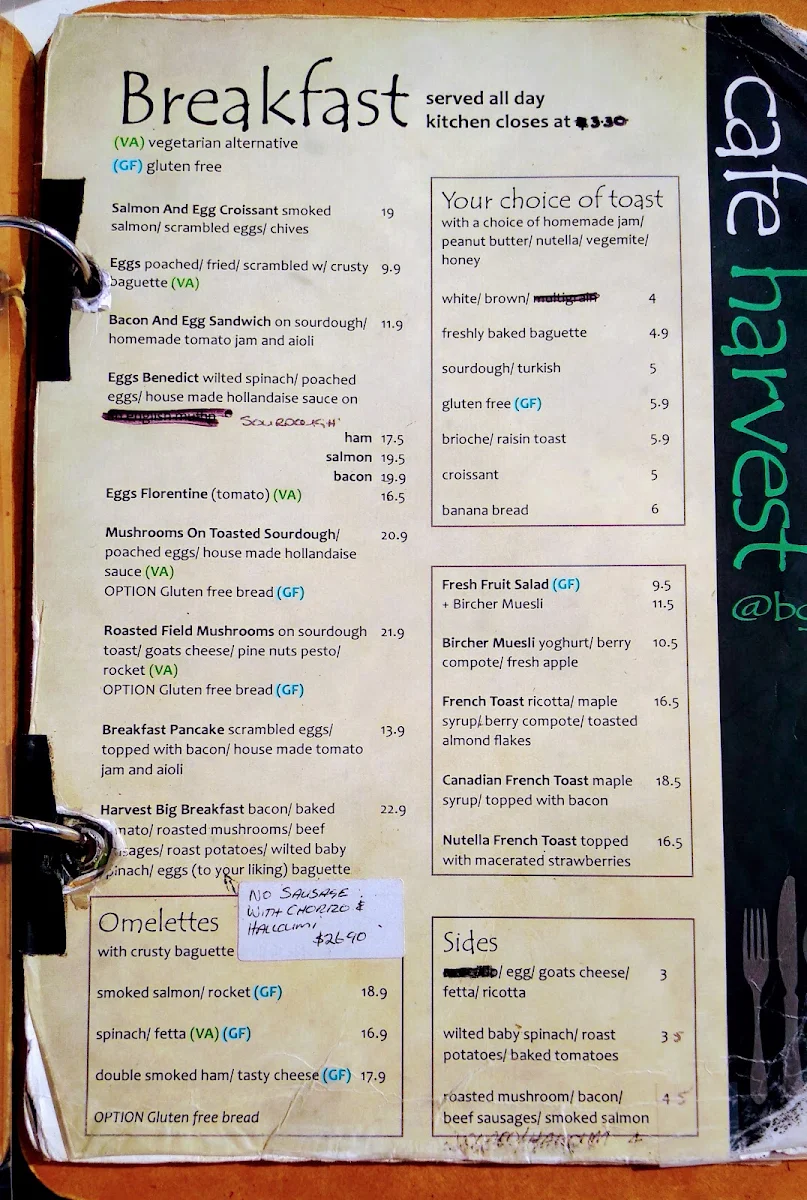 Breakfast
served all day
kitchen closes at 3.30
(VA) vegetarian alternative
(GF) gluten free
Salmon And Egg Croissant smoked 19
salmon/ scrambled eggs/ chives
Eggs poached/fried/scrambled w/ crusty 9.9
baguette (VA)
Bacon And Egg Sandwich on sourdough/ 11.9
homemade tomato jam and aioli
Eggs Benedict wilted spinach/ poached
eggs/ house made hollandaise sauce on
SOURDOUGH
ham 17.5
salmon 19.5
bacon 19.9
Eggs Florentine (tomato) (VA) 16.5
Mushrooms On Toasted Sourdough/ 20.9
poached eggs/ house made hollandaise
sauce (VA)
OPTION Gluten free bread (GF)
Roasted Field Mushrooms on sourdough 21.9
toast/ goats cheese/ pine nuts pesto/
rocket (VA)
OPTION Gluten free bread (GF)
Breakfast Pancake scrambled eggs/ 13.9
topped with bacon/ house made tomato
jam and aioli
Harvest Big Breakfast bacon/ baked 22.9
mato/ roasted mushrooms/ beef
sages/ roast potatoes/ wilted baby
pinach/ eggs (to your liking) baguette
NO SAUSAGE
WITH CHORIZO &
HALLOUMI
$26.90
Omelettes
with crusty baguette
smoked salmon/ rocket (GF) 18.9
spinach/ fetta (VA) (GF) 16.9
double smoked ham/ tasty cheese (GF) 17.9
OPTION Gluten free bread
Your choice of toast
with a choice of homemade jam/
peanut butter/ nutella/ vegemite/
honey
white/ brown/ multigrain 4
freshly baked baguette 4.9
sourdough/ turkish 5
gluten free (GF) 5.9
brioche/ raisin toast 5.9
croissant 5
banana bread 6
Fresh Fruit Salad (GF) 9.5
+ Bircher Muesli 11.5
Bircher Muesli yoghurt/ berry 10.5
compote/ fresh apple
French Toast ricotta/ maple 16.5
syrup/ berry compote/ toasted
almond flakes
Canadian French Toast maple 18.5
syrup/ topped with bacon
Nutella French Toast topped 16.5
with macerated strawberries
Sides
/ egg/ goats cheese/ 3
fetta/ ricotta
wilted baby spinach/ roast 3 5
potatoes/ baked tomatoes
roasted mushroom/ bacon/ 4 5
beef sausages/ smoked salmon
cafe harvest
@bg